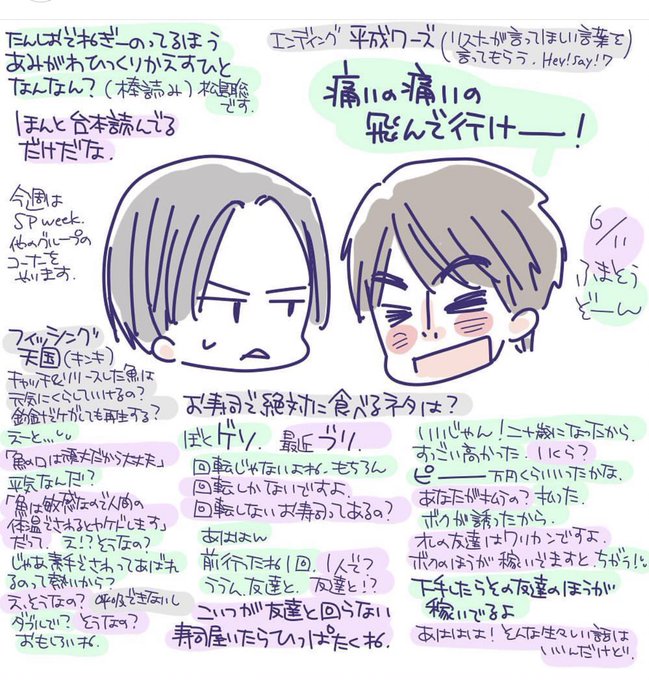 たんしおでねぎーのってるほう
あみがわひっくりかえすひと
なんなん？(棒読み) 松島聡
です。
ほんと台本読んでる
だけだな。
エンディング 平成ワーズ (リスナーが言ってほしい言葉を
言ってもらう. Hey!Say!7)
痛いの痛いの
飛んで行けー！
今週は
SP week.
他のグループの
コーナーを
やります.
6/11
ふまそう
ぞーん
フィッシング
天国(キンキ)
キャッチ&リリースした魚は
元気にくらしていけるの？
釣針でケガしても再生する？
えーと…
「魚の口は頑丈だから大丈夫」
平気なんだ！？
「魚は敏感なので人間の
体温でさわるとヤケドします」
だって. え！？そうなの？
じゃあ素手でさわってあばれ
るのって熱いから？
え、そうなの？ 呼吸できないし
ダブルで！？ そうなの？
おもしろいね.
お寿司で絶対に食べるネタは？
ぼくゲソ. 最近ブリ.
回転じゃないよね. もちろん
回転しかないですよ.
回転しないお寿司ってあるの？
あははん
前行ったね1回. 1人で？
ううん, 友達と. 友達と！？
こいつが友達と回らない
寿司屋いたらひっぱたくね.
いいじゃん！二十歳になったから.
すごい高かった いくら？
ピー 万円くらいいったかな.
あなたがはらうの？ 払った.
ボクが誘ったから.
オレの友達はワリカンですよ.
ボクのほうが稼いでますと. ちがう！
下手したらその友達のほうが
稼いでるよ
あははは！そんな生々しい話は
いいんだけど.